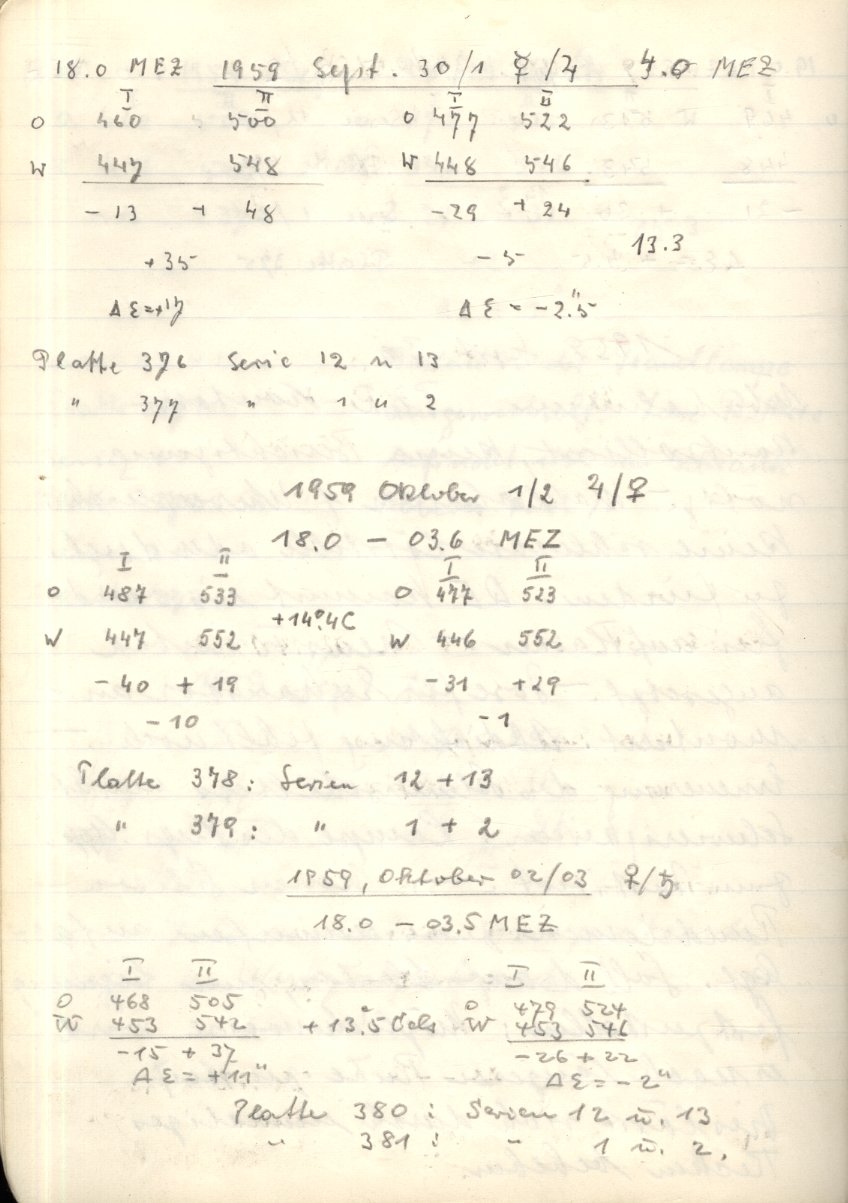 18.0 MEZ 1959 Sept. 30/1 ☿/♃ 4.0 MEZ
I II I II
O 460 500 O 477 522
W 447 548 W 448 546
-13 + 48 -29 + 24
13.3
+35 -5
Δε=+17" Δε = -2."5
Platte 376 Serie 12 u 13
" 377 " 1 u 2
1959 Oktober 1/2 ♃/♀
18.0 — 03.6 MEZ
I II I II
O 487 533 O 477 523
+14°.4C
W 447 552 W 446 552
-40 + 19 -31 +29
-10 -1
Platte 378: Serien 12 + 13
" 379: " 1 + 2
1959, Oktober 02/03 ♀/♄
18.0 — 03.5 MEZ
I II I II
O 468 505 O 479 524
W 453 542 +13°.5 Cels W 453 546
-15 + 37 -26 + 22
Δε = +11" Δε = -2"
Platte 380: Serien 12 u. 13
" 381: " 1 u. 2.